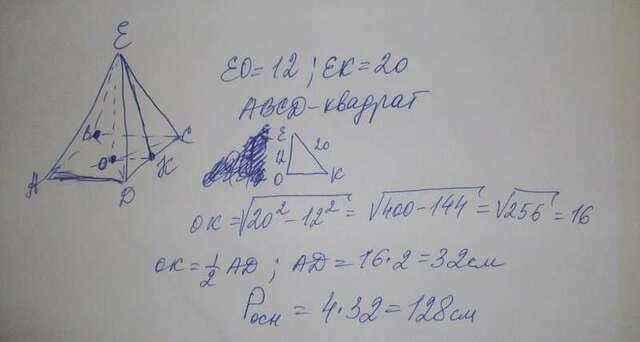 E
B
C
O
K
A
D
EO = 12 ; EK = 20
ABCD - квадрат
E
20
12
O
K
OK = √20² - 12² = √400 - 144 = √256 = 16
OK = 1/2 AD ; AD = 16 · 2 = 32 см
Pосн = 4 · 32 = 128 см